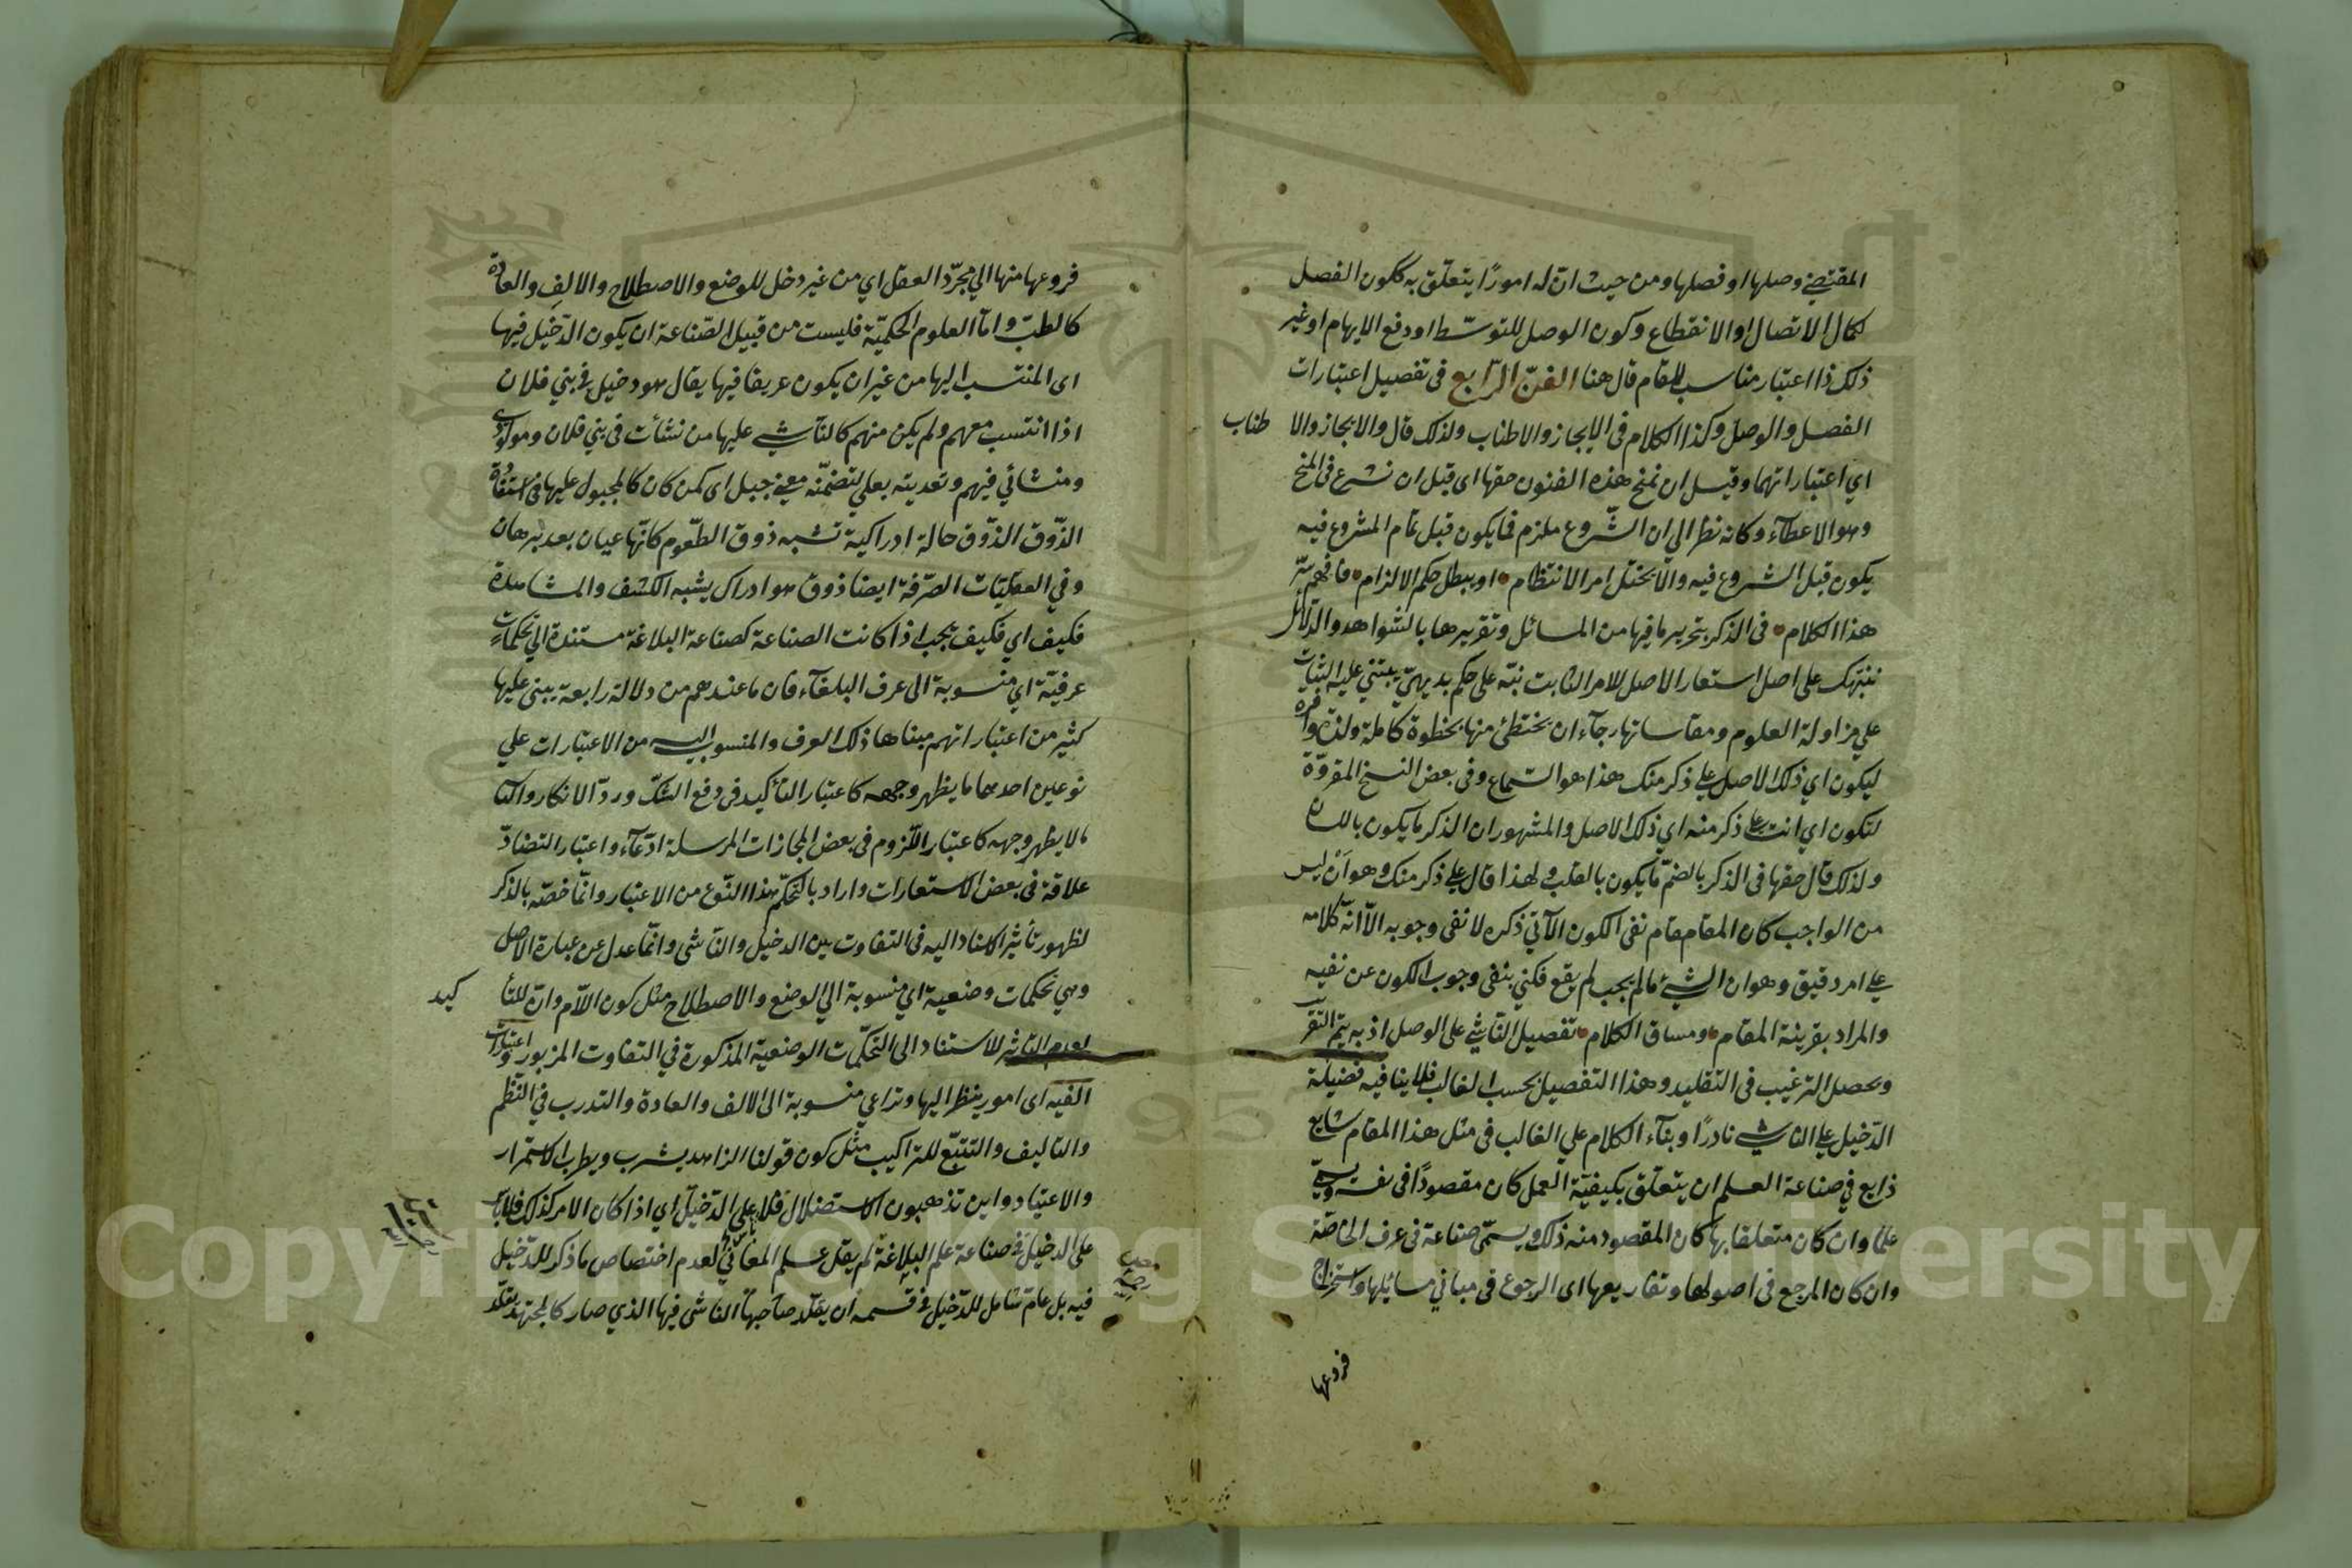 المقتضي وصلها او فصلها ومن حيث ان له امورًا يتعلق به ككون الفصل
لكمال الاتصال او الانقطاع وكون الوصل للتوسّط او دفع الايهام او غير
ذلك ذا اعتبار مناسب للمقام قال هنا الفنّ الرّابع فى تفصيل اعتبارات
الفصل والوصل وكذا الكلام فى الايجاز والاطناب ولذلك قال والايجاز والا طناب
اي اعتباراتهما وقبل ان نمنح هذه الفنون حقها اى قبل ان نشرع فى المنح
وهو الاعطآء وكانه نظر الى ان الشّروع ملزم فما يكون قبل تمام المشروع فيه
يكون قبل الشروع فيه والّا يختل امر الانتظام • او يبطل حكم الالزام • فافهم سرّ
هذا الكلام • فى الذكر بتحرير ما فيها من المسائل وتقريرها بالشواهد والدّلائل
ننبّهك على اصل استعار الاصل للامر الثابت نبّه على حكم بديهيّ يبتني عليه
على مزاولة العلوم ومقاساتها رجآء ان يختطئ منها بخطوة كاملة ولذة وافرة
ليكون اي ذلك الاصل على ذكر منك هذا هو السّماع وفى بعض النسخ المقروّة
لتكون اي انت على ذكر منه اي ذلك الاصل والمشهور ان الذكر ما يكون باللسان
ولذلك قال حقها فى الذكر بالضمّ ما يكون بالقلب ولهذا قال على ذكر منك وهو اَنْ ليس
من الواجب كان المقام مقام نفى الكون الآتي ذكره لا نفى وجوبه الّا انّه كلامه
على امر دقيق وهو ان الشيء ما لم يجب لم يقع فكني بنفى وجوب الكون عن نفيه
والمراد بقرينة المقام • ومساق الكلام • تفصيل النّاشي على الوصل اذ به يتم التقريب
ويحصل الترغيب فى التقليد وهذا التفصيل بحسب الغالب فلا ينافيه فضيلة
الدّخيل على الناشي نادرًا وبنآء الكلام على الغالب فى مثل هذا المقام شايع
ذايع في صناعة العلم ان يتعلّق بكيفيّة العمل كان مقصودًا فى نفسه ويسمّى
علما وان كان متعلقا بها كان المقصود منه ذلك ويسمّى صناعة فى عرف الخاصّة
وان كان المرجع فى اصولها وتفاريعها اى الرجوع فى مباني مسائلها واستخراج
فروعها
فروعها منها الي مجرّد العقل اي من غير دخل للوضع والاصطلاح والالف والعادة
كالطبّ وامّا العلوم الحكميّة فليست من قبيل الصّناعة ان يكون الدّخيل فيها
اى المنتسب اليها من غير ان يكون عريقا فيها يقال هو دخيل في بني فلان
اذا انتسب معهم ولم يكن منهم كالنّاشي عليها من نشأت فى بني فلان ومولدي
ومنشائي فيهم وتعديته بعلي لتضمّنه معنى جبل اى كمن كان كالمجبول عليها فى استفادة
الذّوق الذّوق حالة ادراكية تشبه ذوق الطّعوم كانّها عيان بعد برهان
وفي العقليّات الصّرفة ايضا ذوق هو ادراك يشبه الكشف والمشاهدة
فكيف اي فكيف يجب اذا كانت الصناعة كصناعة البلاغة مستندة الى تحكماتٍ
عرفيّة اي منسوبة الى عرف البلغآء فان ما عندهم من دلالة رابعة يبنى عليها
كثير من اعتباراتهم مبناها ذلك العرف والمنسوب اليه من الاعتبارات على
نوعين احدهما ما يظهر وجهه كاعتبار التأكيد فى دفع الشكّ وردّ الانكار والثا
ما لا يظهر وجهه كاعتبار اللّزوم فى بعض المجازات المرسلة ادّعآء واعتبار التضادّ
علاقة فى بعض الاستعارات واراد بالتحكّم هذا النّوع من الاعتبار وانّما خصّه بالذكر
لظهور تأثير الاسناد اليه فى التفاوت بين الدخيل والنّاشى وانّما عدل عن عبارة الاصل
وهي تحكمات وضعية اي منسوبة الى الوضع والاصطلاح مثل كون اللّام وانّ للتأ كيد
لعدم التاثير للاستناد الى التحكّمات الوضعية المذكورة في التفاوت المزبور واعتبارات
الفيه اى امور ينظر اليها وتراعي منسوبة الى الالف والعادة والتدرب في النّظم
والتاليف والتتبّع للتراكيب مثل كون قولنا الزاهد يشرب ويطرب لاستمرار
والاعتياد واين تذهبون الاستضلال فلا على الدّخيل اي اذا كان الامر كذلك فلا بأس
على الدخيل في صناعة علم البلاغة لم يقل علم المعاني لعدم اختصاص ما ذكر للدّخيل
فيه بل عامّ شامل للدّخيل في قسمه ان يقلّد صاحبها الناشى فيها الذي صار كالمجتهد يقلّد
Copyright © King Saud University